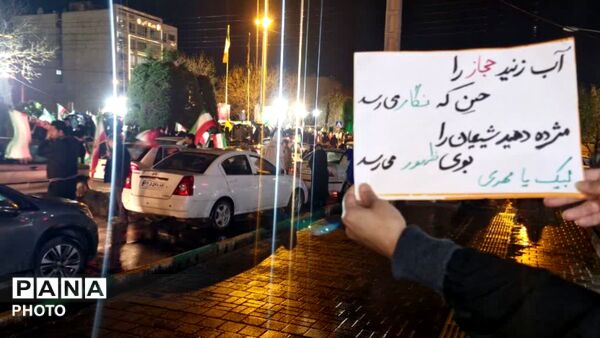 آب زنید حجاز را
حین که نگار می رسد
مژده دهید شیعیان را
بوی ظهور می رسد
لبیک یا مهدی
PANA
PHOTO